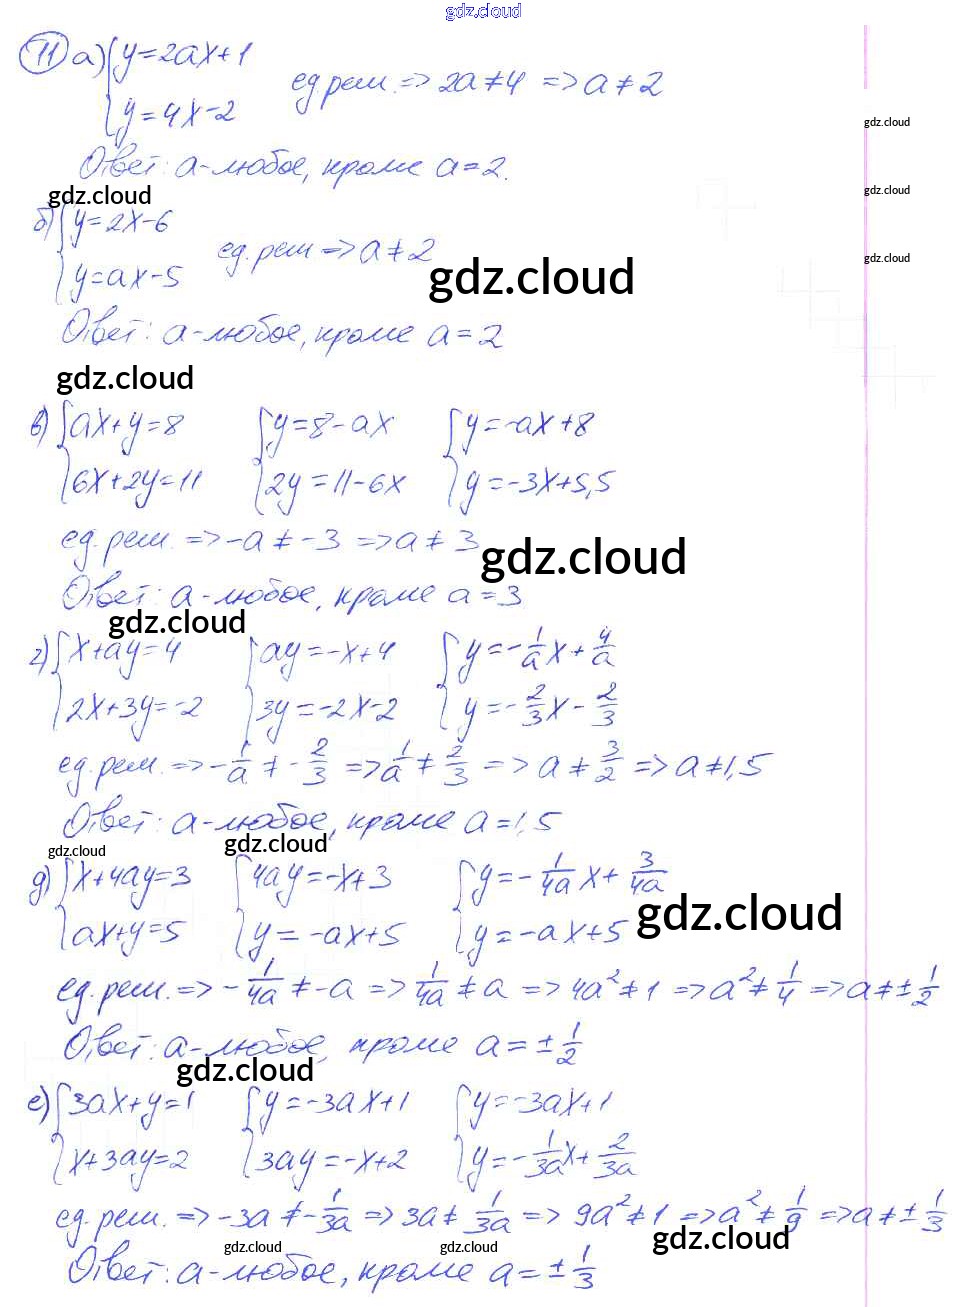 gdz.cloud
11 а) {y=2ax+1
{y=4x-2
ед реш. => 2a≠4 => a≠2
gdz.cloud
Ответ: a-любое, кроме a=2.
gdz.cloud
gdz.cloud
б) {y=2x-6
{y=ax-5
ед. реш => a≠2
gdz.cloud
gdz.cloud
Ответ: a-любое, кроме a=2
gdz.cloud
в) {ax+y=8 {y=8-ax {y=-ax+8
{6x+2y=11 {2y=11-6x {y=-3x+5,5
ед. реш. => -a≠-3 => a≠3
gdz.cloud
Ответ: a-любое, кроме a=3
gdz.cloud
г) {x+ay=4 {ay=-x+4 {y=-1/a x+4/a
{2x+3y=-2 {3y=-2x-2 {y=-2/3 x-2/3
ед. реш. => -1/a≠-2/3 => 1/a≠2/3 => a≠3/2 => a≠1,5
Ответ: a-любое, кроме a=1,5
gdz.cloud
gdz.cloud
д) {x+4ay=3 {4ay=-x+3 {y=-1/4a x+3/4a
{ax+y=5 {y=-ax+5 {y=-ax+5
gdz.cloud
ед. реш. => -1/4a≠-a => 1/4a≠a => 4a²≠1 => a²≠1/4 => a≠±1/2
Ответ: a-любое, кроме a=±1/2
gdz.cloud
е) {3ax+y=1 {y=-3ax+1 {y=-3ax+1
{x+3ay=2 {3ay=-x+2 {y=-1/3a x+2/3a
ед. реш. => -3a≠-1/3a => 3a≠1/3a => 9a²≠1 => a²≠1/9 => a≠±1/3
gdz.cloud
gdz.cloud
gdz.cloud
Ответ: a-любое, кроме a=±1/3